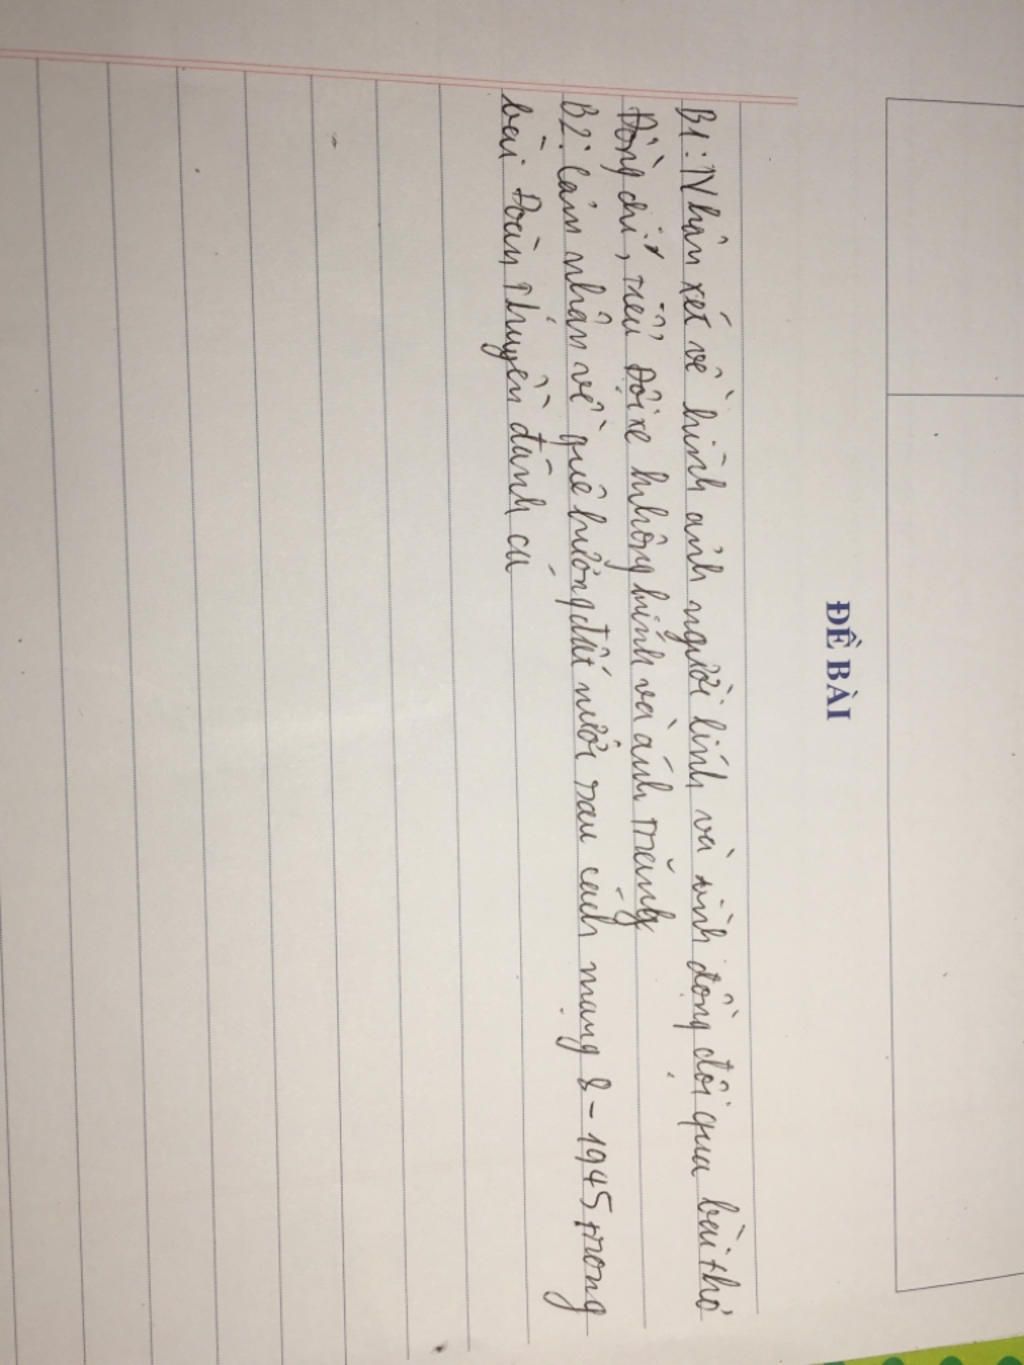 ĐỀ BÀI
B1: Nhận xét về hình ảnh người lính và tình đồng đội qua bài thơ
Đồng chí, tiểu đội xe không kính và ánh trăng
B2: Cảm nhận về quê hương đất nước sau cách mạng 8-1945 trong
bài Đoàn thuyền đánh cá